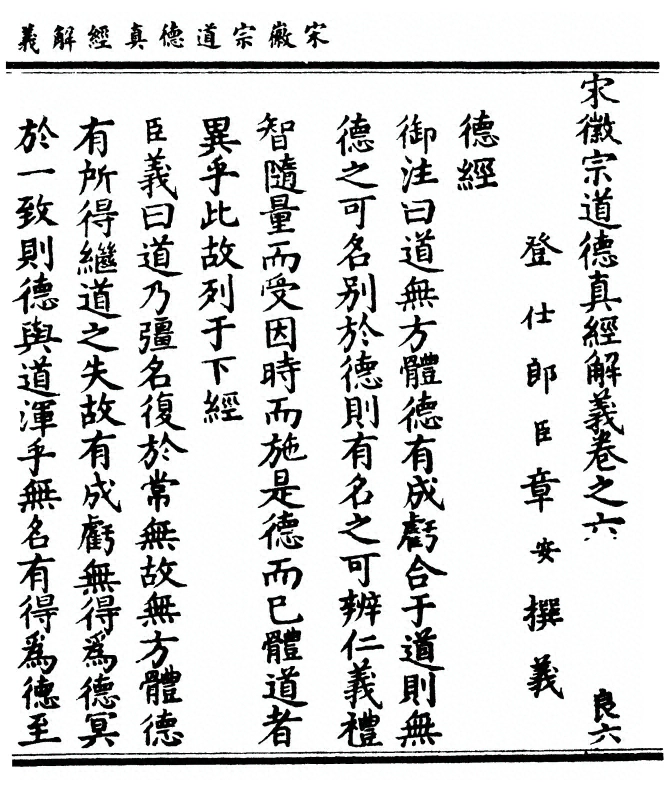 宋徽宗道德真經解義
宋徽宗道德真經解義卷之六
良六
登仕郎臣章安撰義
德經
御注曰道無方體德有成虧合于道則無
德之可名别於德則有名之可辨仁義禮
智隨量而受因時而施是德而已體道者
異乎此故列于下經
臣義曰道乃彊名復於常無故無方體德
有所得繼道之失故有成虧無得爲德冥
於一致則德與道渾乎無名有得爲德至